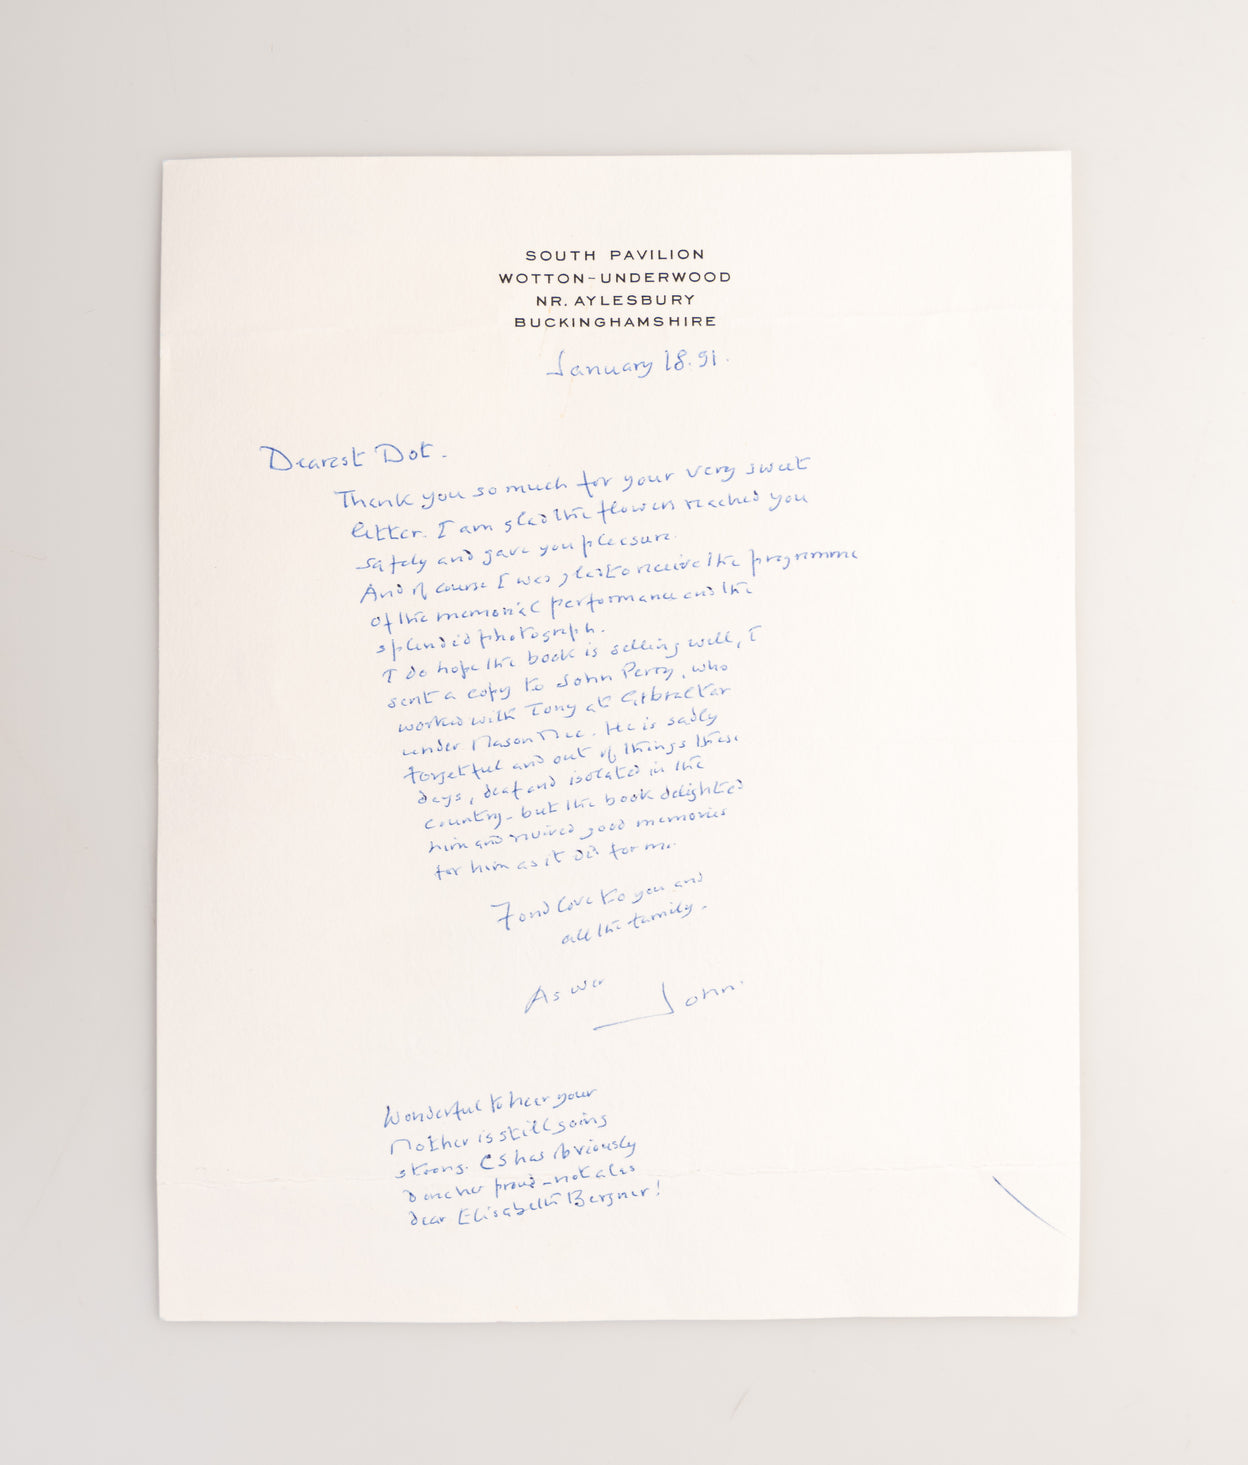 SOUTH PAVILION
WOTTON-UNDERWOOD
NR. AYLESBURY
BUCKINGHAMSHIRE
January 18. 91.
Dearest Dot.
Thank you so much for your very sweet
letter. I am glad the flowers reached you
safely and gave you pleasure.
And of course I was glad to receive the programme
of the memorial performance and the
splendid photograph.
I do hope the book is selling well, I
sent a copy to John Perry, who
worked with Tony at Gibraltar
under Mason Mac. He is sadly
forgetful and out of things these
days, deaf and isolated in the
country - but the book delighted
him and revived good memories
for him as it did for me.
Fond love to you and
all the family.
As ever
John.
Wonderful to hear your
Mother is still going
strong. CS has obviously
done her proud - not alas
dear Elisabeth Bergner!